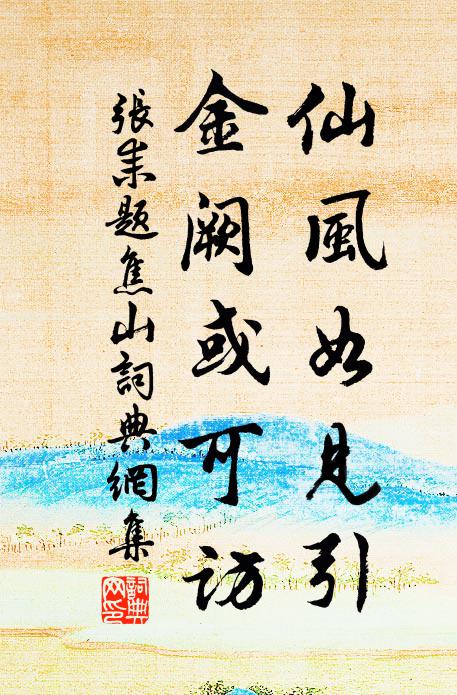 仙風如見引
金闕或可訪
張耒題焦山詞典網集